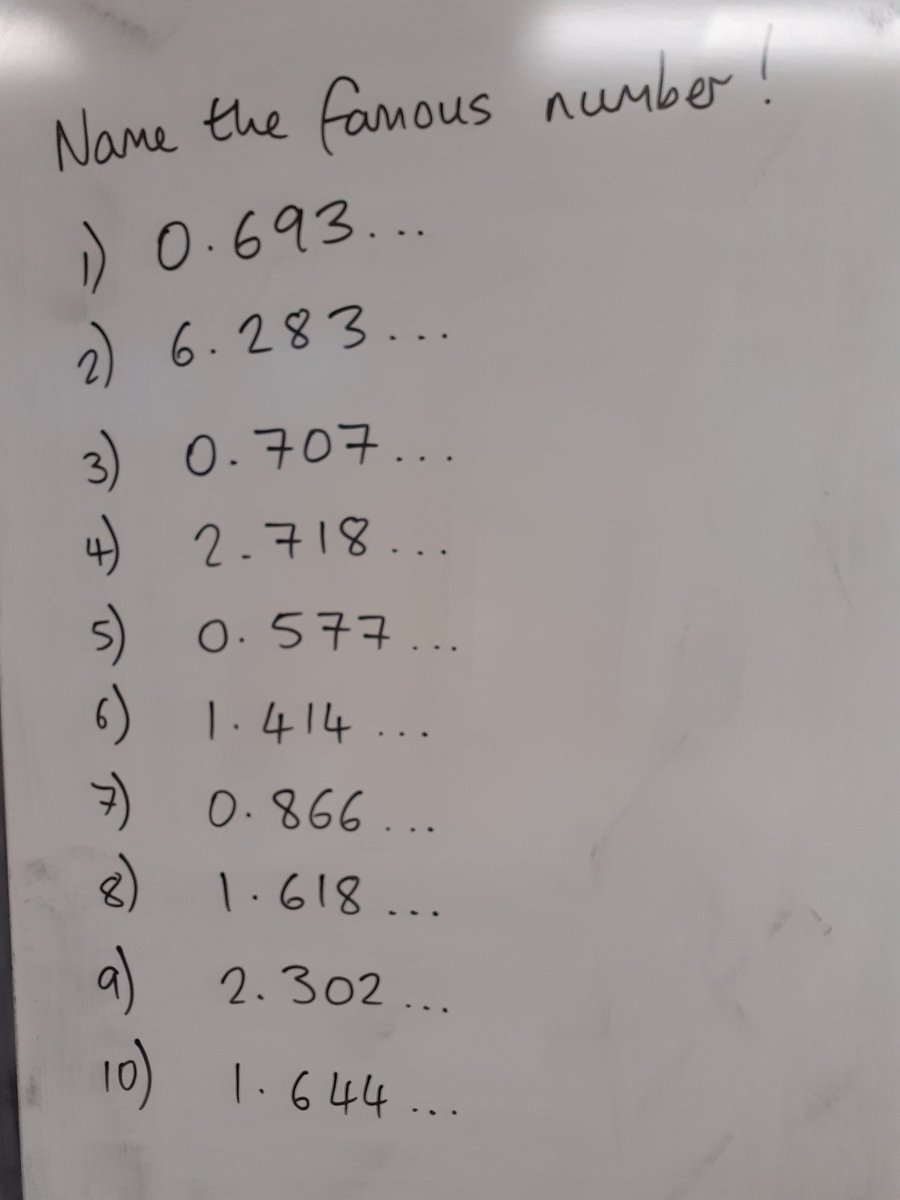 Name the famous number!
1) 0.693...
2) 6.283...
3) 0.707...
4) 2.718...
5) 0.577...
6) 1.414...
7) 0.866...
8) 1.618...
9) 2.302...
10) 1.644...